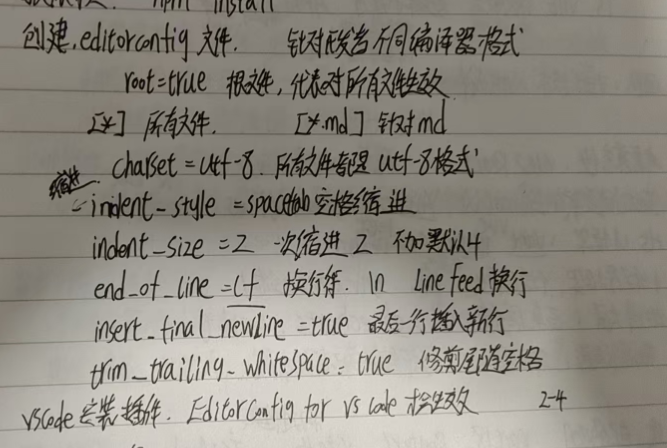 npm install
创建.editorconfig 文件. 针对开发者不同编译器格式
root=true 根文件,代表对所有文件生效
[*] 所有文件. [*.md] 针对md
charset = utf-8. 所有文件都是 utf-8格式
缩进
indent_style = space tab 空格缩进
indent_size = 2 一次缩进 2 不加默认4
end_of_line = lf 换行符. \n Line feed 换行
insert_final_newline = true 最后一行插入新行
trim_trailing_whitespace = true 修剪尾随空格
vscode安装插件. EditorConfig for vs code 才生效 2-4